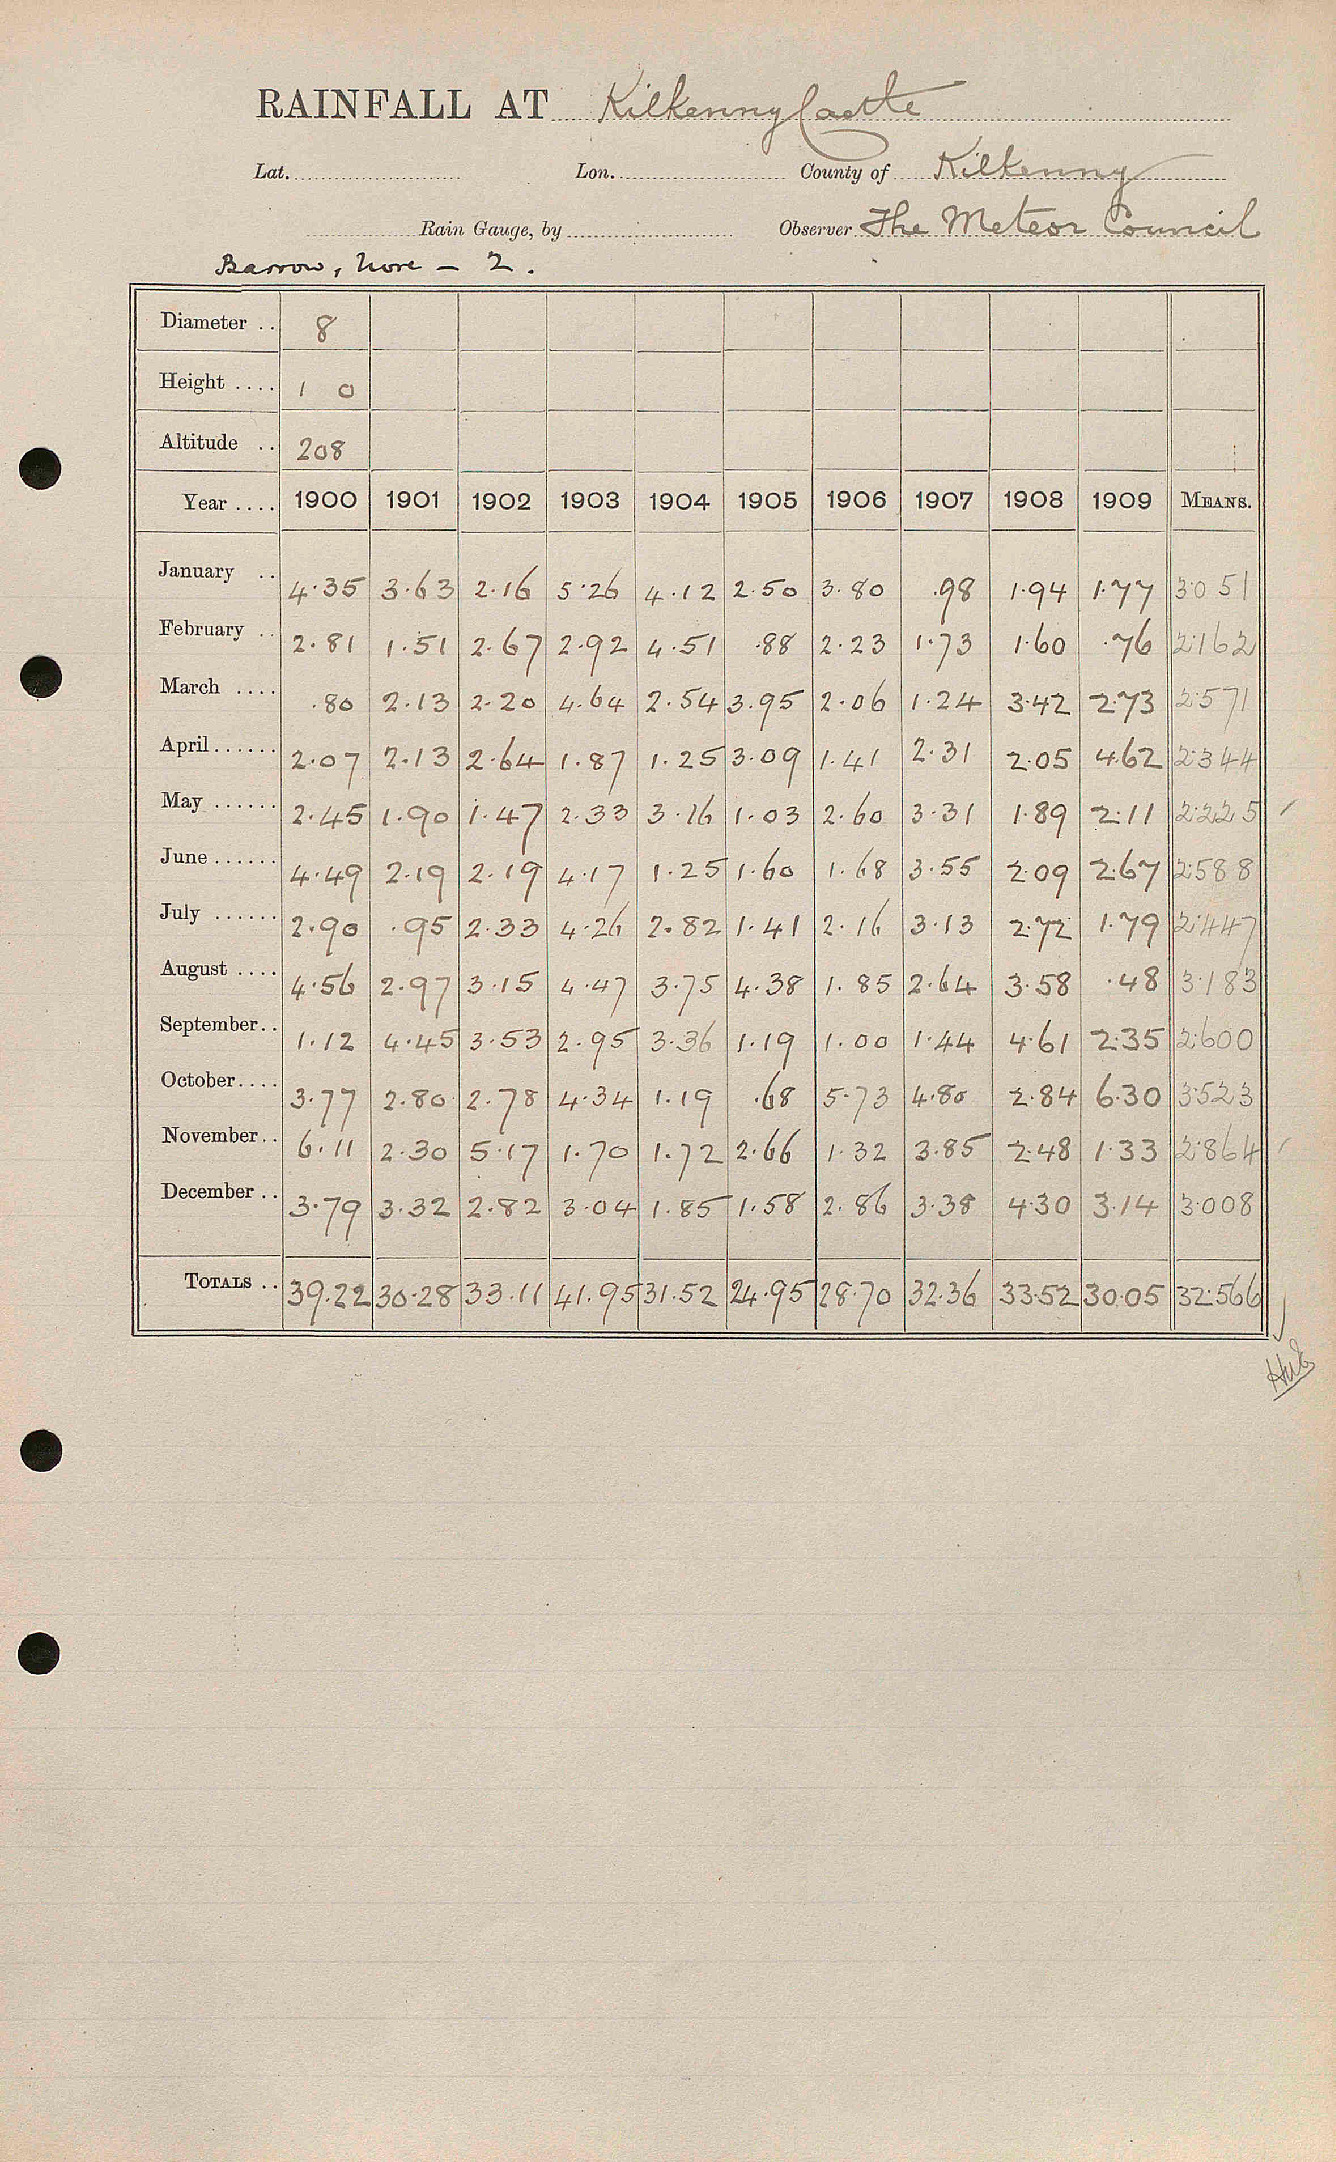 RAINFALL AT Kilkenny Castle
Lat. Lon. County of Kilkenny
Rain Gauge, by Observer The Meteor Council
Barrow, Nore – 2.
Diameter .. 8
Height .... 1 0
Altitude .. 208
Year .... 1900 1901 1902 1903 1904 1905 1906 1907 1908 1909 MEANS.
January .. 4.35 3.63 2.16 5.26 4.12 2.50 3.80 .98 1.94 1.77 3.051
February .. 2.81 1.51 2.67 2.92 4.51 .88 2.23 1.73 1.60 .76 2.162
March .... .80 2.13 2.20 4.64 2.54 3.95 2.06 1.24 3.42 2.73 2.571
April ...... 2.07 2.13 2.64 1.87 1.25 3.09 1.41 2.31 2.05 4.62 2.344
May ...... 2.45 1.90 1.47 2.33 3.16 1.03 2.60 3.31 1.89 2.11 2.225
June ...... 4.49 2.19 2.19 4.17 1.25 1.60 1.68 3.55 2.09 2.67 2.588
July ...... 2.90 .95 2.33 4.26 2.82 1.41 2.16 3.13 2.72 1.79 2.447
August .... 4.56 2.97 3.15 4.47 3.75 4.38 1.85 2.64 3.58 .48 3.183
September .. 1.12 4.45 3.53 2.95 3.36 1.19 1.00 1.44 4.61 2.35 2.600
October .... 3.77 2.80 2.78 4.34 1.19 .68 5.73 4.80 2.84 6.30 3.523
November .. 6.11 2.30 5.17 1.70 1.72 2.66 1.32 3.85 2.48 1.33 2.864
December .. 3.79 3.32 2.82 3.04 1.85 1.58 2.86 3.38 4.30 3.14 3.008
TOTALS .. 39.22 30.28 33.11 41.95 31.52 24.95 28.70 32.36 33.52 30.05 32.566